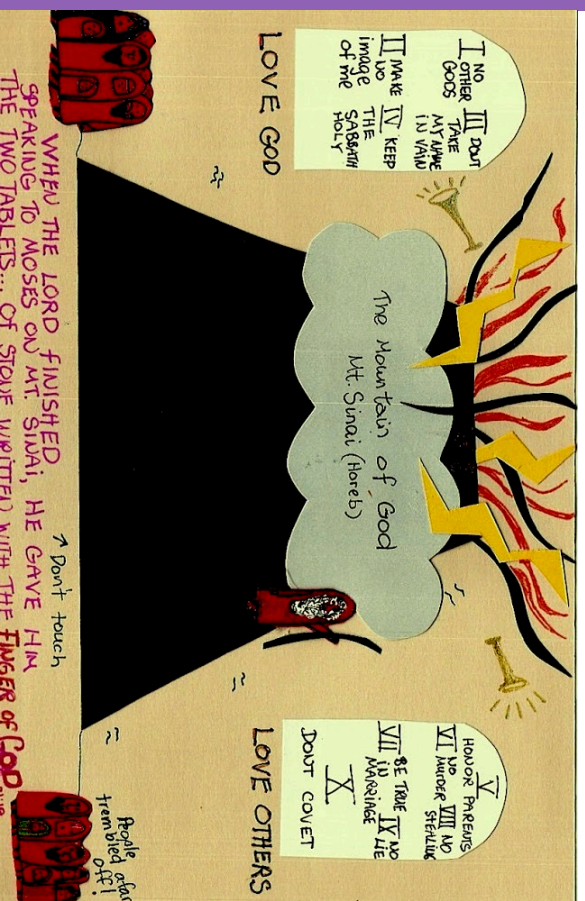 I NO
OTHER
GODS
III DONT
TAKE
MY NAME
IN VAIN
II MAKE
NO
image
of me
IV KEEP
THE
SABBATH
HOLY
LOVE GOD
The Mountain of God
Mt. Sinai (Horeb)
V
HONOR PARENTS
VI NO
MURDER
VIII NO
STEALING
VII BE TRUE
IN
MARRIAGE
IX NO
LIE
X
DONT COVET
LOVE OTHERS
↑ Don't touch
People
trembled afar
off!
WHEN THE LORD FINISHED
SPEAKING TO MOSES ON MT. SINAI, HE GAVE HIM
THE TWO TABLETS... OF STONE WRITTEN WITH THE FINGER OF GOD